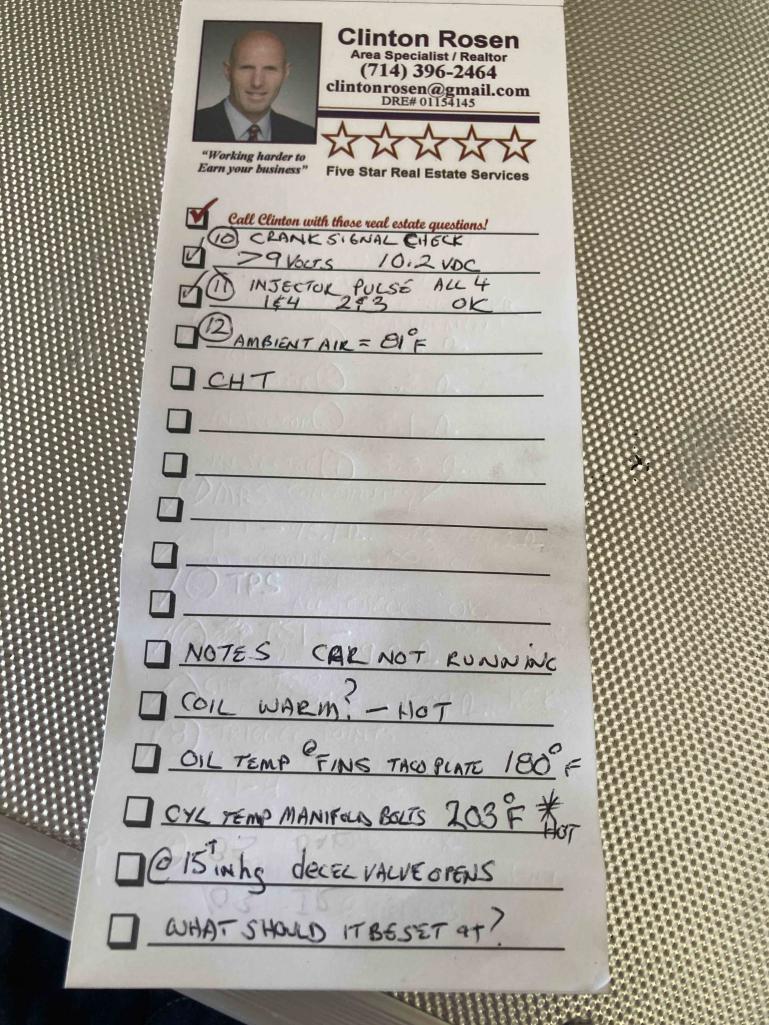 Clinton Rosen
Area Specialist / Realtor
(714) 396-2464
clintonrosen@gmail.com
DRE# 01154145
"Working harder to
Earn your business"
Five Star Real Estate Services
Call Clinton with those real estate questions!
10 CRANK SIGNAL CHECK
>9 VOLTS 10.2 VDC
11 INJECTOR PULSE ALL 4
1&4 2&3 OK
12 AMBIENT AIR = 81°F
CHT
TPS
NOTES CAR NOT RUNNING
COIL WARM? - HOT
OIL TEMP @ FINS TACO PLATE 180°F
CYL TEMP MANIFOLD BOLTS 203°F * HOT
@ 15+ inhg decel VALVE OPENS
WHAT SHOULD IT BE SET at?